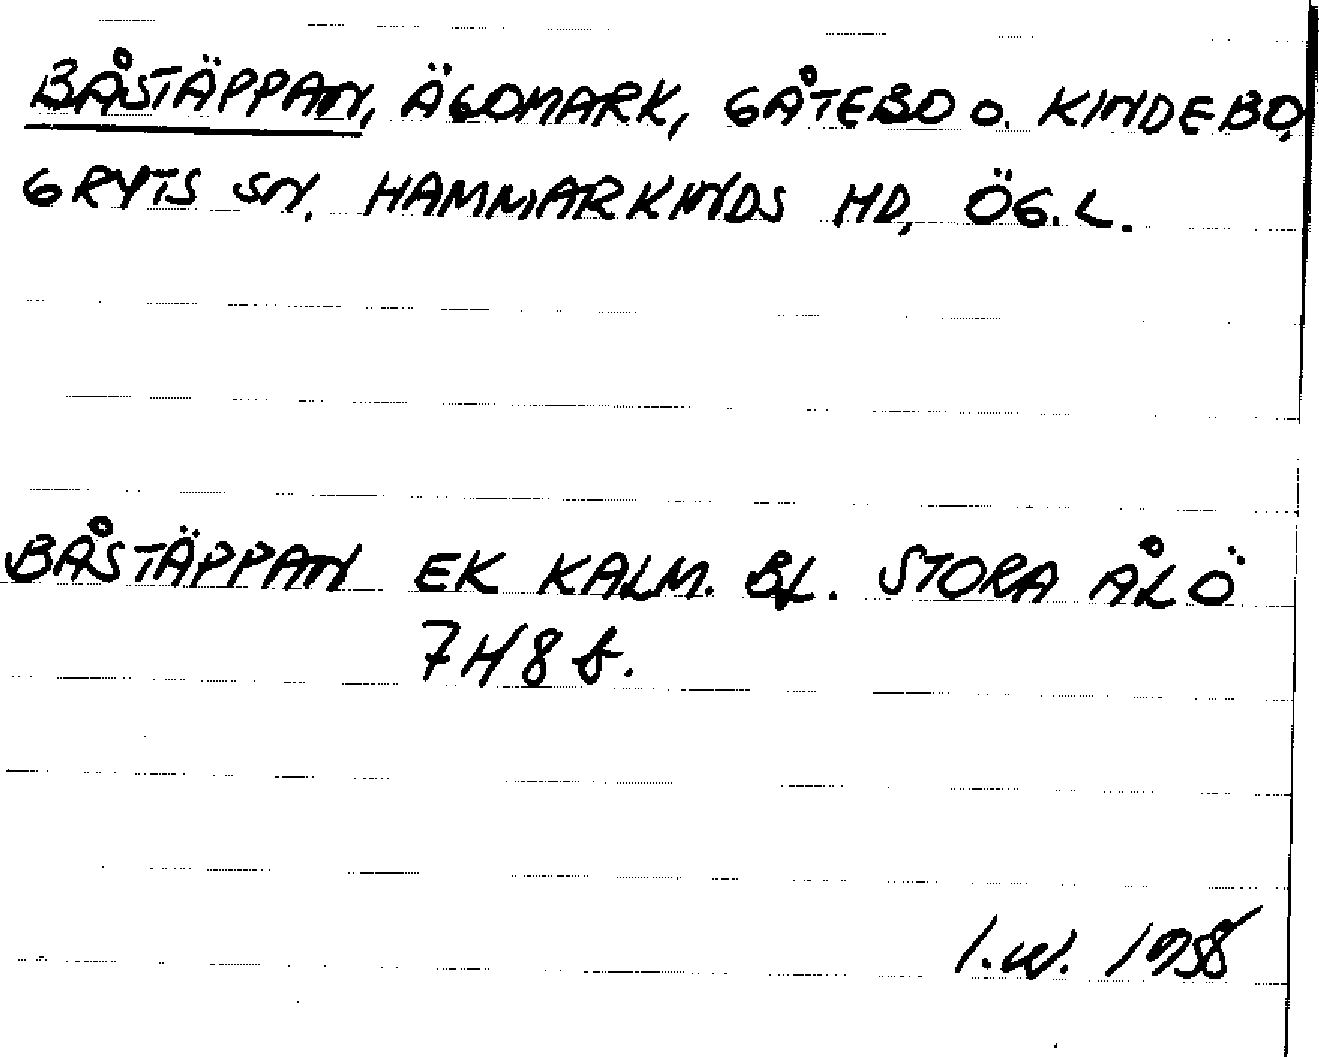 BÅSTÄPPAN, ÄGOMARK, GÅTEBO O. KINDEBO,
GRYTS SN. HAMMARKINDS HD, ÖG.L.
BÅSTÄPPAN EK KALM. BL. STORA ÅLÖ
7H8b.
I.W. 1958